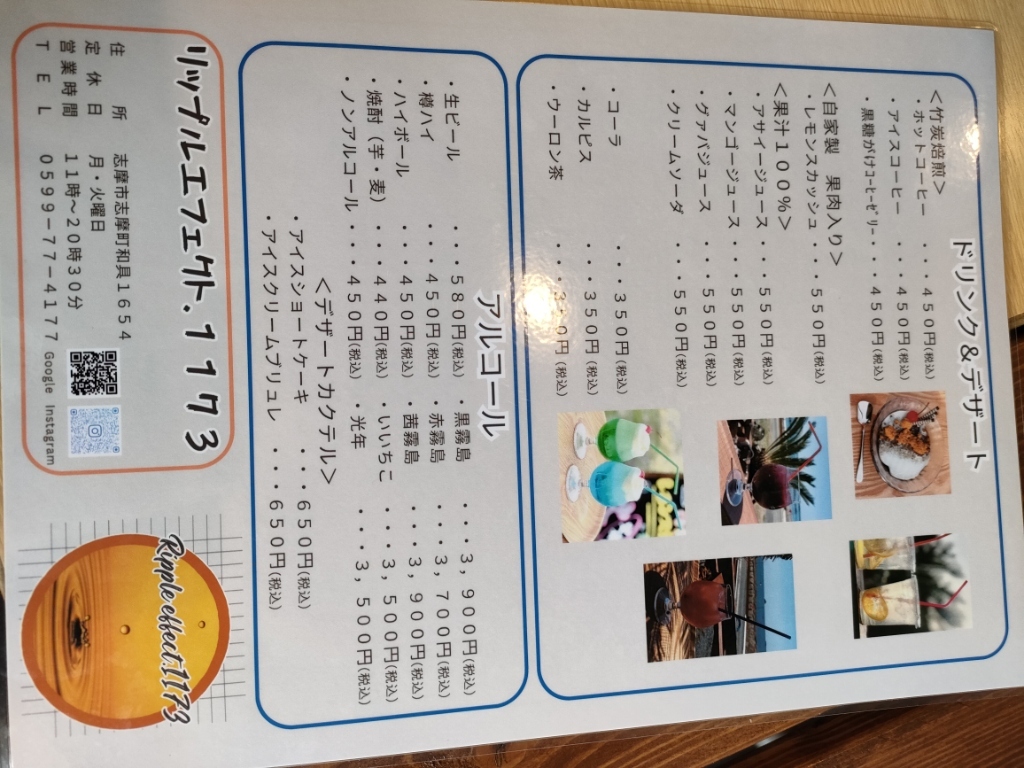 ドリンク＆デザート
＜竹炭焙煎＞
・ホットコーヒー ・・・４５０円(税込)
・アイスコーヒー ・・・４５０円(税込)
黒糖がけｺｰﾋｰｾﾞﾘｰ・・・４５０円(税込)
＜自家製 果肉入り＞
・レモンスカッシュ・・・５５０円(税込)
＜果汁１００％＞
・アサイージュース・・・５５０円(税込)
・マンゴージュース・・・５５０円(税込)
・グァバジュース ・・・５５０円(税込)
・クリームソーダ ・・・５５０円(税込)
・コーラ ・・・３５０円(税込)
・カルピス ・・・３５０円(税込)
・ウーロン茶 ・・・円(税込)
アルコール
・生ビール ・・・５８０円(税込)
・樽ハイ ・・・４５０円(税込)
・ハイボール ・・・４５０円(税込)
・焼酎（芋・麦） ・・・４４０円(税込)
・ノンアルコール・・・４５０円(税込)
・黒霧島 ・・・３，９００円(税込)
・赤霧島 ・・・３，７００円(税込)
・茜霧島 ・・・３，９００円(税込)
・いいちこ ・・・３，５００円(税込)
・光年 ・・・３，５００円(税込)
＜デザートカクテル＞
・アイスショートケーキ ・・・６５０円(税込)
・アイスクリームブリュレ ・・・６５０円(税込)
リップルエフェクト．１１７３
住所 志摩市志摩町和具１６５４
定休日 月・火曜日
営業時間 １１時～２０時３０分
ＴＥＬ ０５９９－７７－４１７７
Google Instagram
Ripple effect.1173